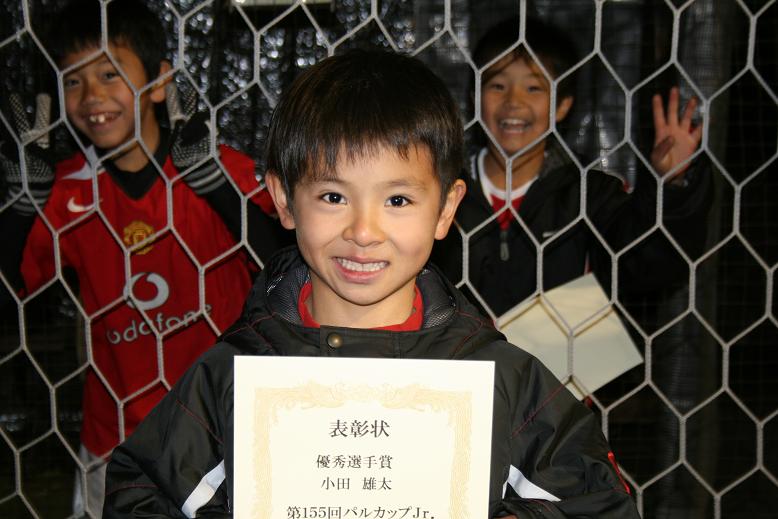 表彰状
優秀選手賞
小田 雄太
第155回パルカップJr.
vodafone